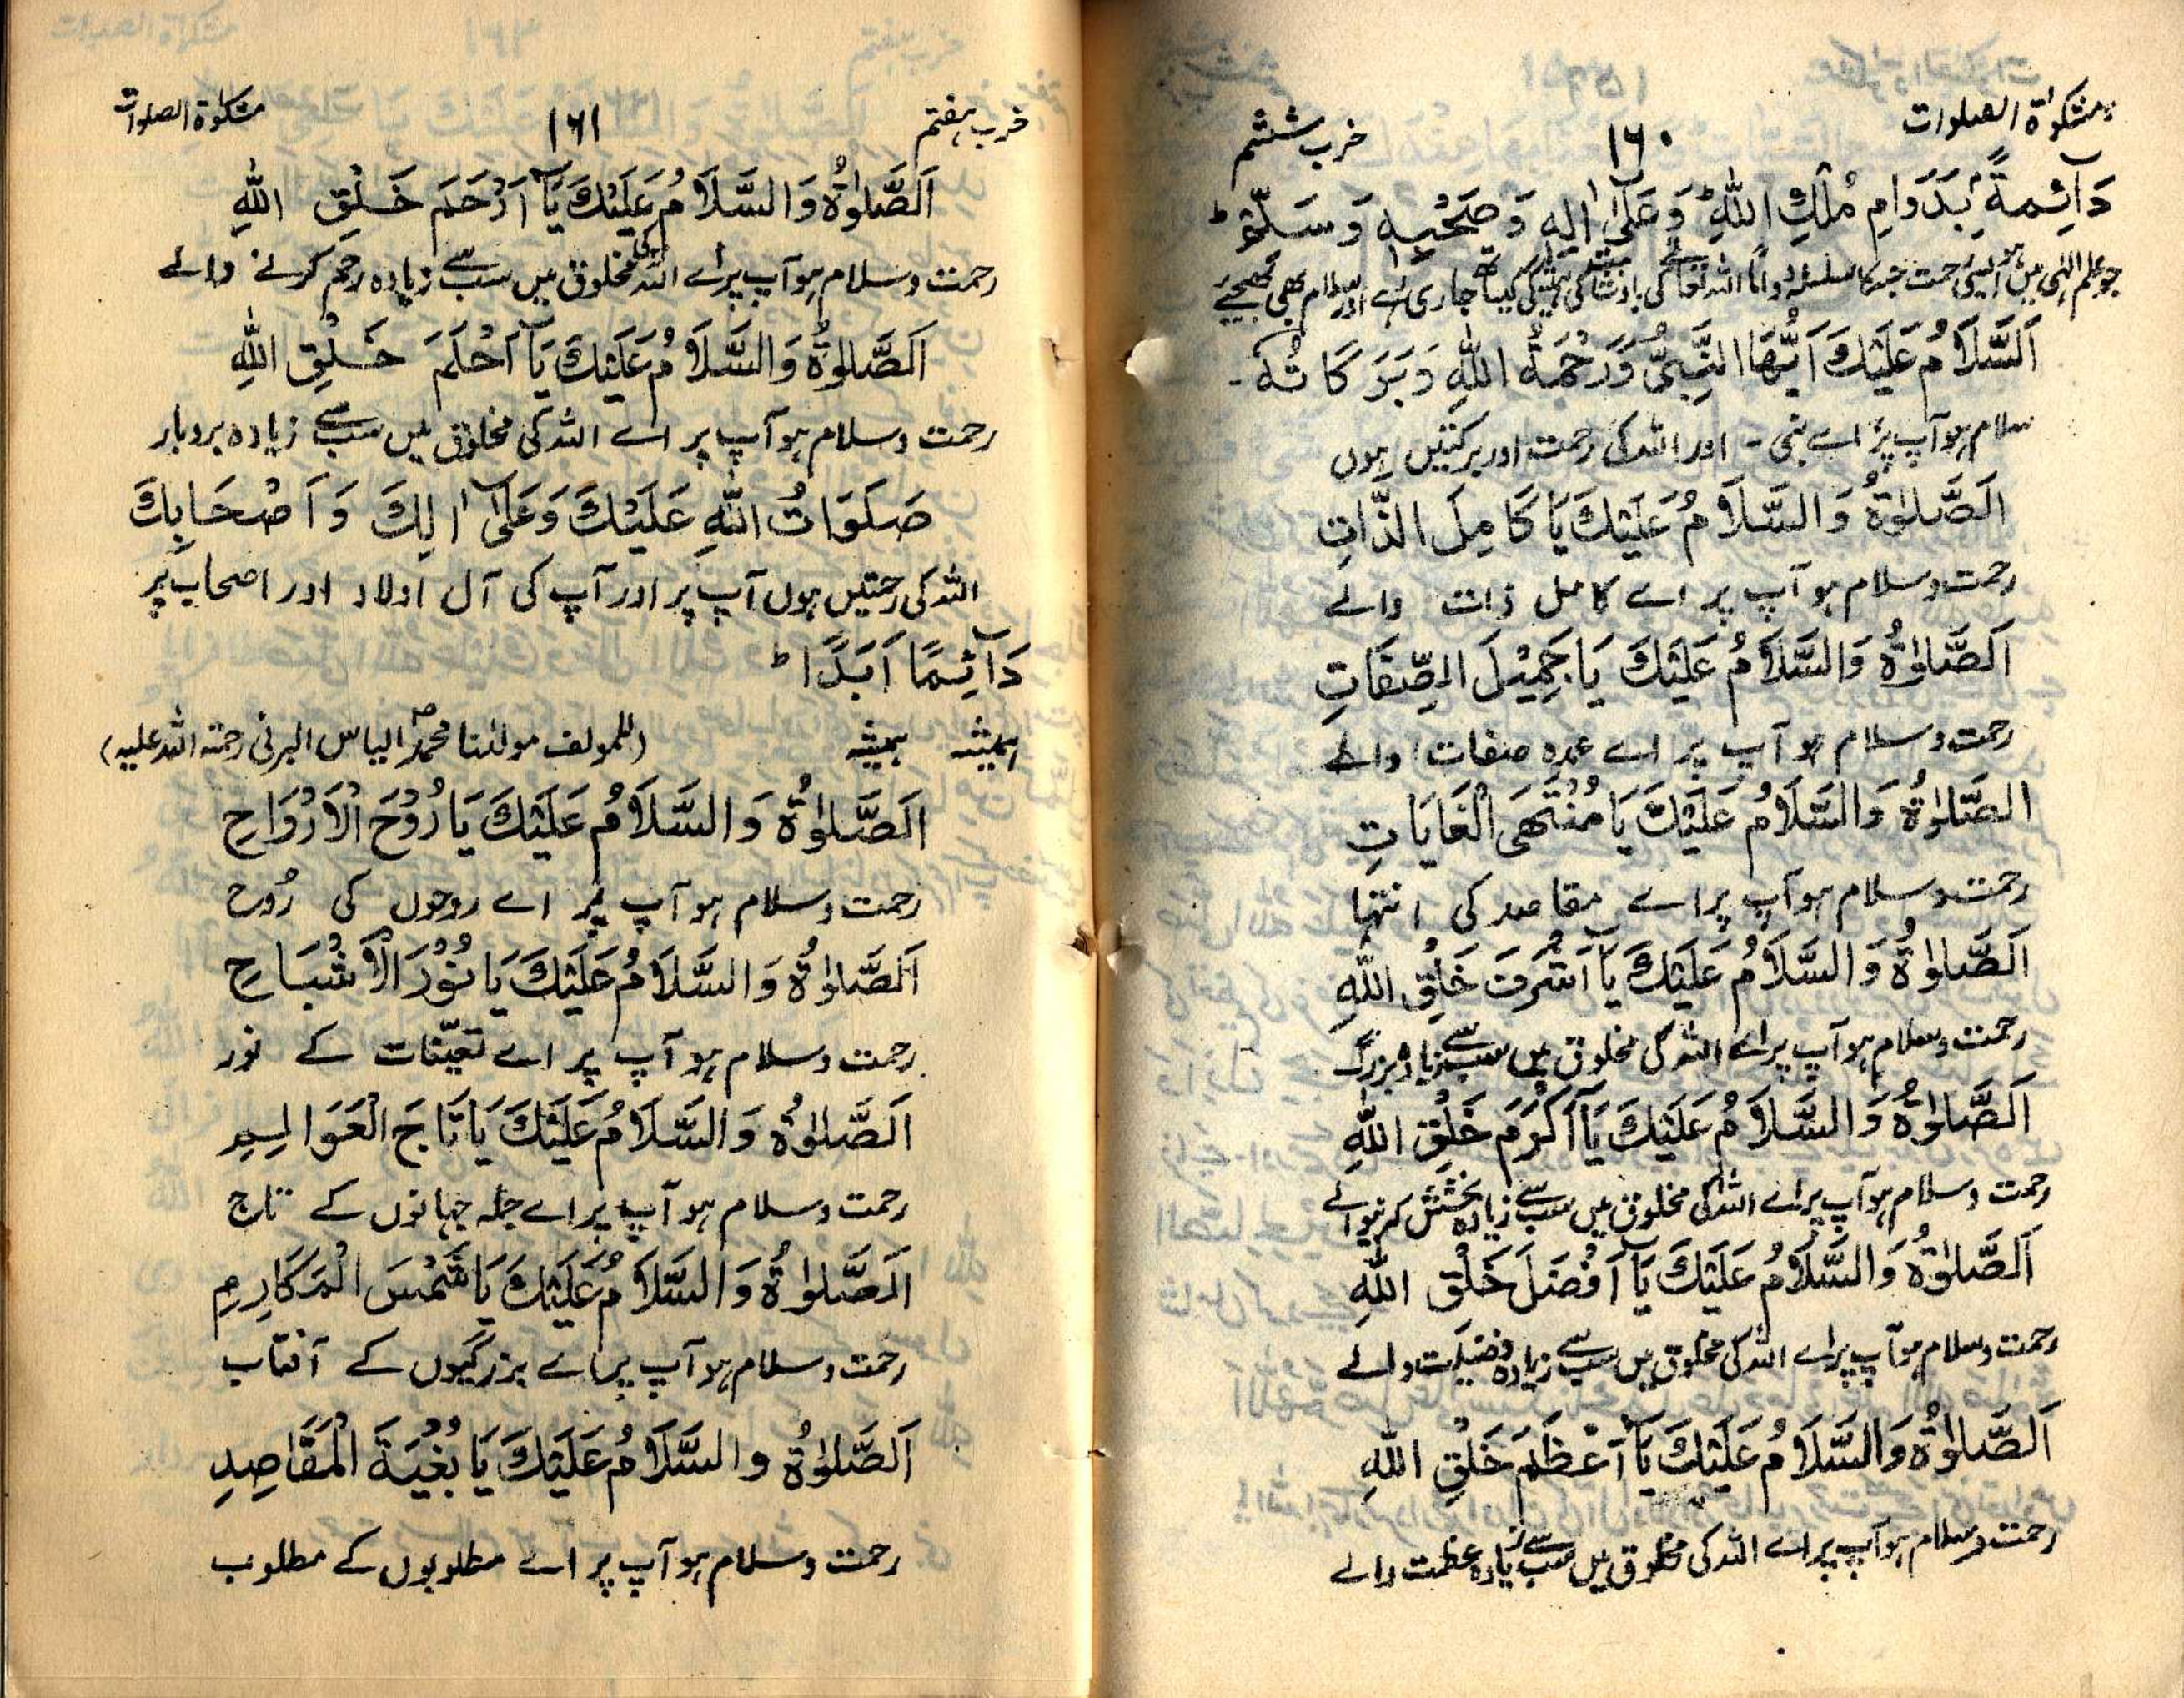 مشکوٰۃ الصلوات
۱۶۰
حزب ششم
دَآئِمَةً بِدَوَامِ مُلْكِ اللّٰهِ وَعَلٰٓى اٰلِهٖ وَصَحْبِهٖ وَسَلِّمْ ط
جو علم الٰہی میں ہو ایسی رحمت جس کا سلسلہ دواماً اللہ تعالٰے کی بادشاہت کی ہمیشگی کیساتھ جاری رہے اور سلام بھی بھیجیے
اَلسَّلَامُ عَلَيْكَ اَيُّهَا النَّبِيُّ وَرَحْمَةُ اللّٰهِ وَبَرَكَاتُهٗ -
سلام ہو آپ پر اے نبی - اور اللہ کی رحمت اور برکتیں ہوں
اَلصَّلٰوةُ وَالسَّلَامُ عَلَيْكَ يَا كَامِلَ الذَّاتِ
رحمت و سلام ہو آپ پر اے کامل ذات والے
اَلصَّلٰوةُ وَالسَّلَامُ عَلَيْكَ يَا جَمِيْلَ الصِّفَاتِ
رحمت و سلام ہو آپ پر اے عمدہ صفات والے
الصَّلٰوةُ وَالسَّلَامُ عَلَيْكَ يَا مُنْتَهَى الْغَايَاتِ
رحمت و سلام ہو آپ پر اے مقاصد کی انتہا
اَلصَّلٰوةُ وَالسَّلَامُ عَلَيْكَ يَآ اَشْرَفَ خَلْقِ اللّٰهِ
رحمت و سلام ہو آپ پر اے اللہ کی مخلوق میں سب سے زیادہ بزرگ
اَلصَّلٰوةُ وَالسَّلَامُ عَلَيْكَ يَآ اَكْرَمَ خَلْقِ اللّٰهِ
رحمت و سلام ہو آپ پر اے اللہ کی مخلوق میں سب سے زیادہ بخشش کرنیوالے
اَلصَّلٰوةُ وَالسَّلَامُ عَلَيْكَ يَآ اَفْضَلَ خَلْقِ اللّٰهِ
رحمت و سلام ہو آپ پر اے اللہ کی مخلوق میں سب سے زیادہ فضیلت والے
اَلصَّلٰوةُ وَالسَّلَامُ عَلَيْكَ يَآ اَعْظَمَ خَلْقِ اللّٰهِ
رحمت و سلام ہو آپ پر اے اللہ کی مخلوق میں سب سے زیادہ عظمت والے
حزب ہفتم
۱۶۱
مشکوٰۃ الصلوات
اَلصَّلٰوةُ وَالسَّلَامُ عَلَيْكَ يَآ اَرْحَمَ خَلْقِ اللّٰهِ
رحمت و سلام ہو آپ پر اے اللہ کی مخلوق میں سب سے زیادہ رحم کرنے والے
اَلصَّلٰوةُ وَالسَّلَامُ عَلَيْكَ يَآ اَحْلَمَ خَلْقِ اللّٰهِ
رحمت و سلام ہو آپ پر اے اللہ کی مخلوق میں سب سے زیادہ بردبار
صَلَوَاتُ اللّٰهِ عَلَيْكَ وَعَلٰٓى اٰلِكَ وَاَصْحَابِكَ
اللہ کی رحمتیں ہوں آپ پر اور آپ کی آل اولاد اور اصحاب پر
دَآئِمًا اَبَدًا ط
ہمیشہ ہمیشہ (للمولف مولٰنا محمد الیاس البرنی رحمتہ اللہ علیہ)
اَلصَّلٰوةُ وَالسَّلَامُ عَلَيْكَ يَا رُوْحَ الْاَرْوَاحِ
رحمت و سلام ہو آپ پر اے روحوں کی رُوح
اَلصَّلٰوةُ وَالسَّلَامُ عَلَيْكَ يَا نُوْرَ الْاَشْبَاحِ
رحمت و سلام ہو آپ پر اے تعیّنات کے نور
اَلصَّلٰوةُ وَالسَّلَامُ عَلَيْكَ يَا تَاجَ الْعَوَالِمِ
رحمت و سلام ہو آپ پر اے جملہ جہانوں کے تاج
اَلصَّلٰوةُ وَالسَّلَامُ عَلَيْكَ يَا شَمْسَ الْمَكَارِمِ
رحمت و سلام ہو آپ پر اے بزرگیوں کے آفتاب
اَلصَّلٰوةُ والسَّلَامُ عَلَيْكَ يَا بُغْيَةَ الْمَقَاصِدِ
رحمت و سلام ہو آپ پر اے مطلوبوں کے مطلوب